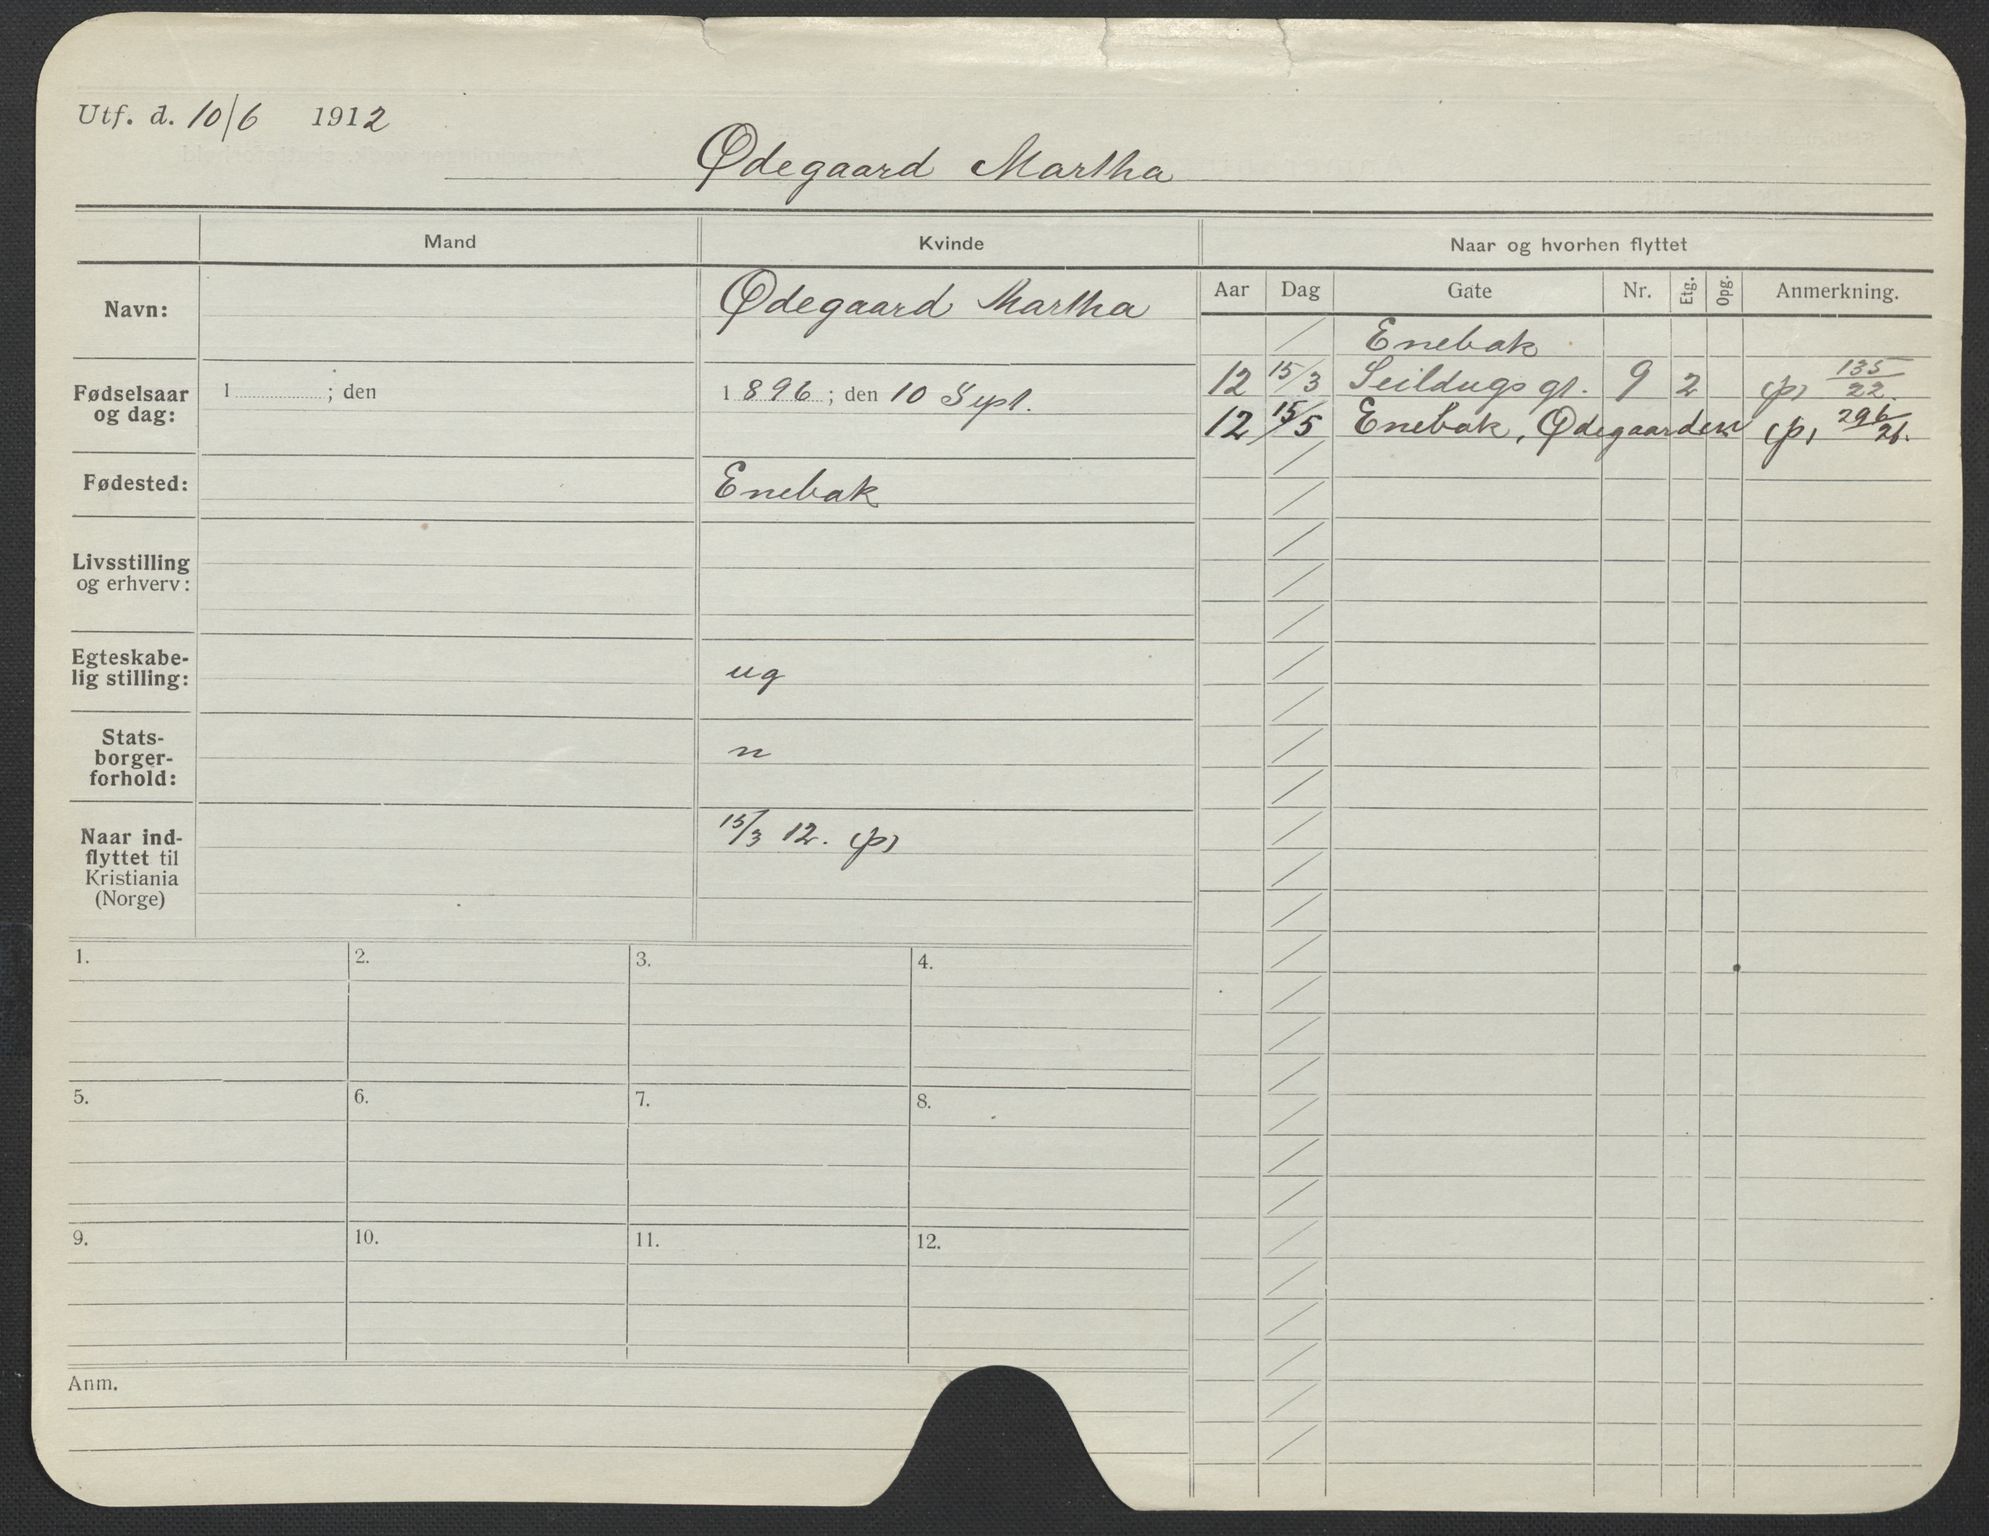 Utf. d. 10/6 1912
Ødegaard Martha
Mand
Kvinde
Naar og hvorhen flyttet
Navn:
Ødegaard Martha
Aar
Dag
Gate
Nr.
Etg.
Opg.
Anmerkning.
Enebak
12 15/3 Seildugsgt. 9 2 (p) 135/22.
12 15/5 Enebak, Ødegaarden (p) 296/26.
Fødselsaar
og dag:
1 ; den
1896; den 10 Sept.
Fødested:
Enebak
Livsstilling
og erhverv:
Egteskabe-
lig stilling:
ug
Stats-
borger-
forhold:
n
Naar ind-
flyttet til
Kristiania
(Norge)
15/3 12. (p)
1.
2.
3.
4.
5.
6.
7.
8.
9.
10.
11.
12.
Anm.